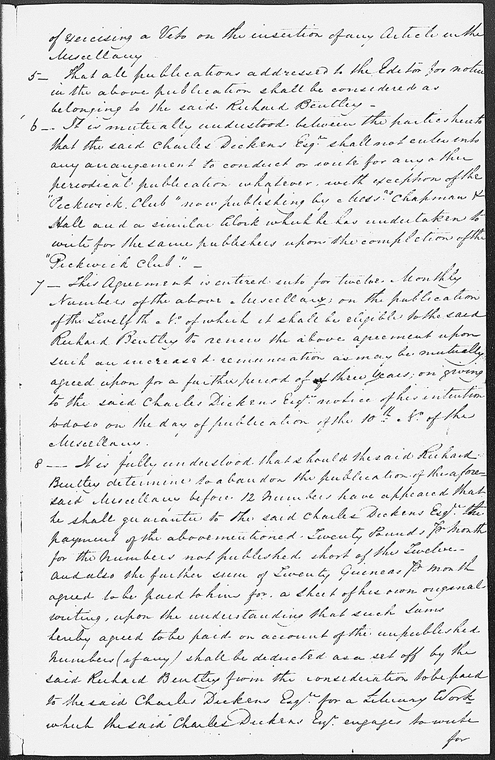 of exercising a Veto on the insertion of any Article in the
Miscellany.
5 — That all publications addressed to the Editor for notice
in the above publication shall be considered as
belonging to the said Richard Bentley —
6 — It is mutually understood between the parties hereto
that the said Charles Dickens Esqr. shall not enter into
any arrangement to conduct or write for any other
periodical publication whatever, with exception of the
"Pickwick Club" now publishing by Messrs. Chapman &
Hall and a similar Work which he has undertaken to
write for the same publishers upon the completion of the
"Pickwick Club". —
7 — This Agreement is entered into for twelve Monthly
Numbers of the above Miscellany; on the publication
of the Twelfth No. of which it shall be eligible to the said
Richard Bentley to renew the above agreement upon
such an increased remuneration as may be mutually
agreed upon for a further period of three Years; on giving
to the said Charles Dickens Esqr. notice of his intention
to do so on the day of publication of the 10th No. of the
Miscellany.
8 — It is fully understood that should the said Richard
Bentley determine to abandon the publication of the afore-
said Miscellany before 12 Numbers have appeared that
he shall guarantee to the said Charles Dickens Esqr. the
payment of the abovementioned Twenty Pounds Pr month
for the Numbers not published short of the Twelve —
and also the further sum of Twenty Guineas Pr month
agreed to be paid to him for a sheet of his own original
writing, upon the understanding that such sums
hereby agreed to be paid on account of the unpublished
Numbers (if any) shall be deducted as a set off by the
said Richard Bentley from the consideration to be paid
to the said Charles Dickens Esqr. for a Literary Work
which the said Charles Dickens Esqr. engages to write
for